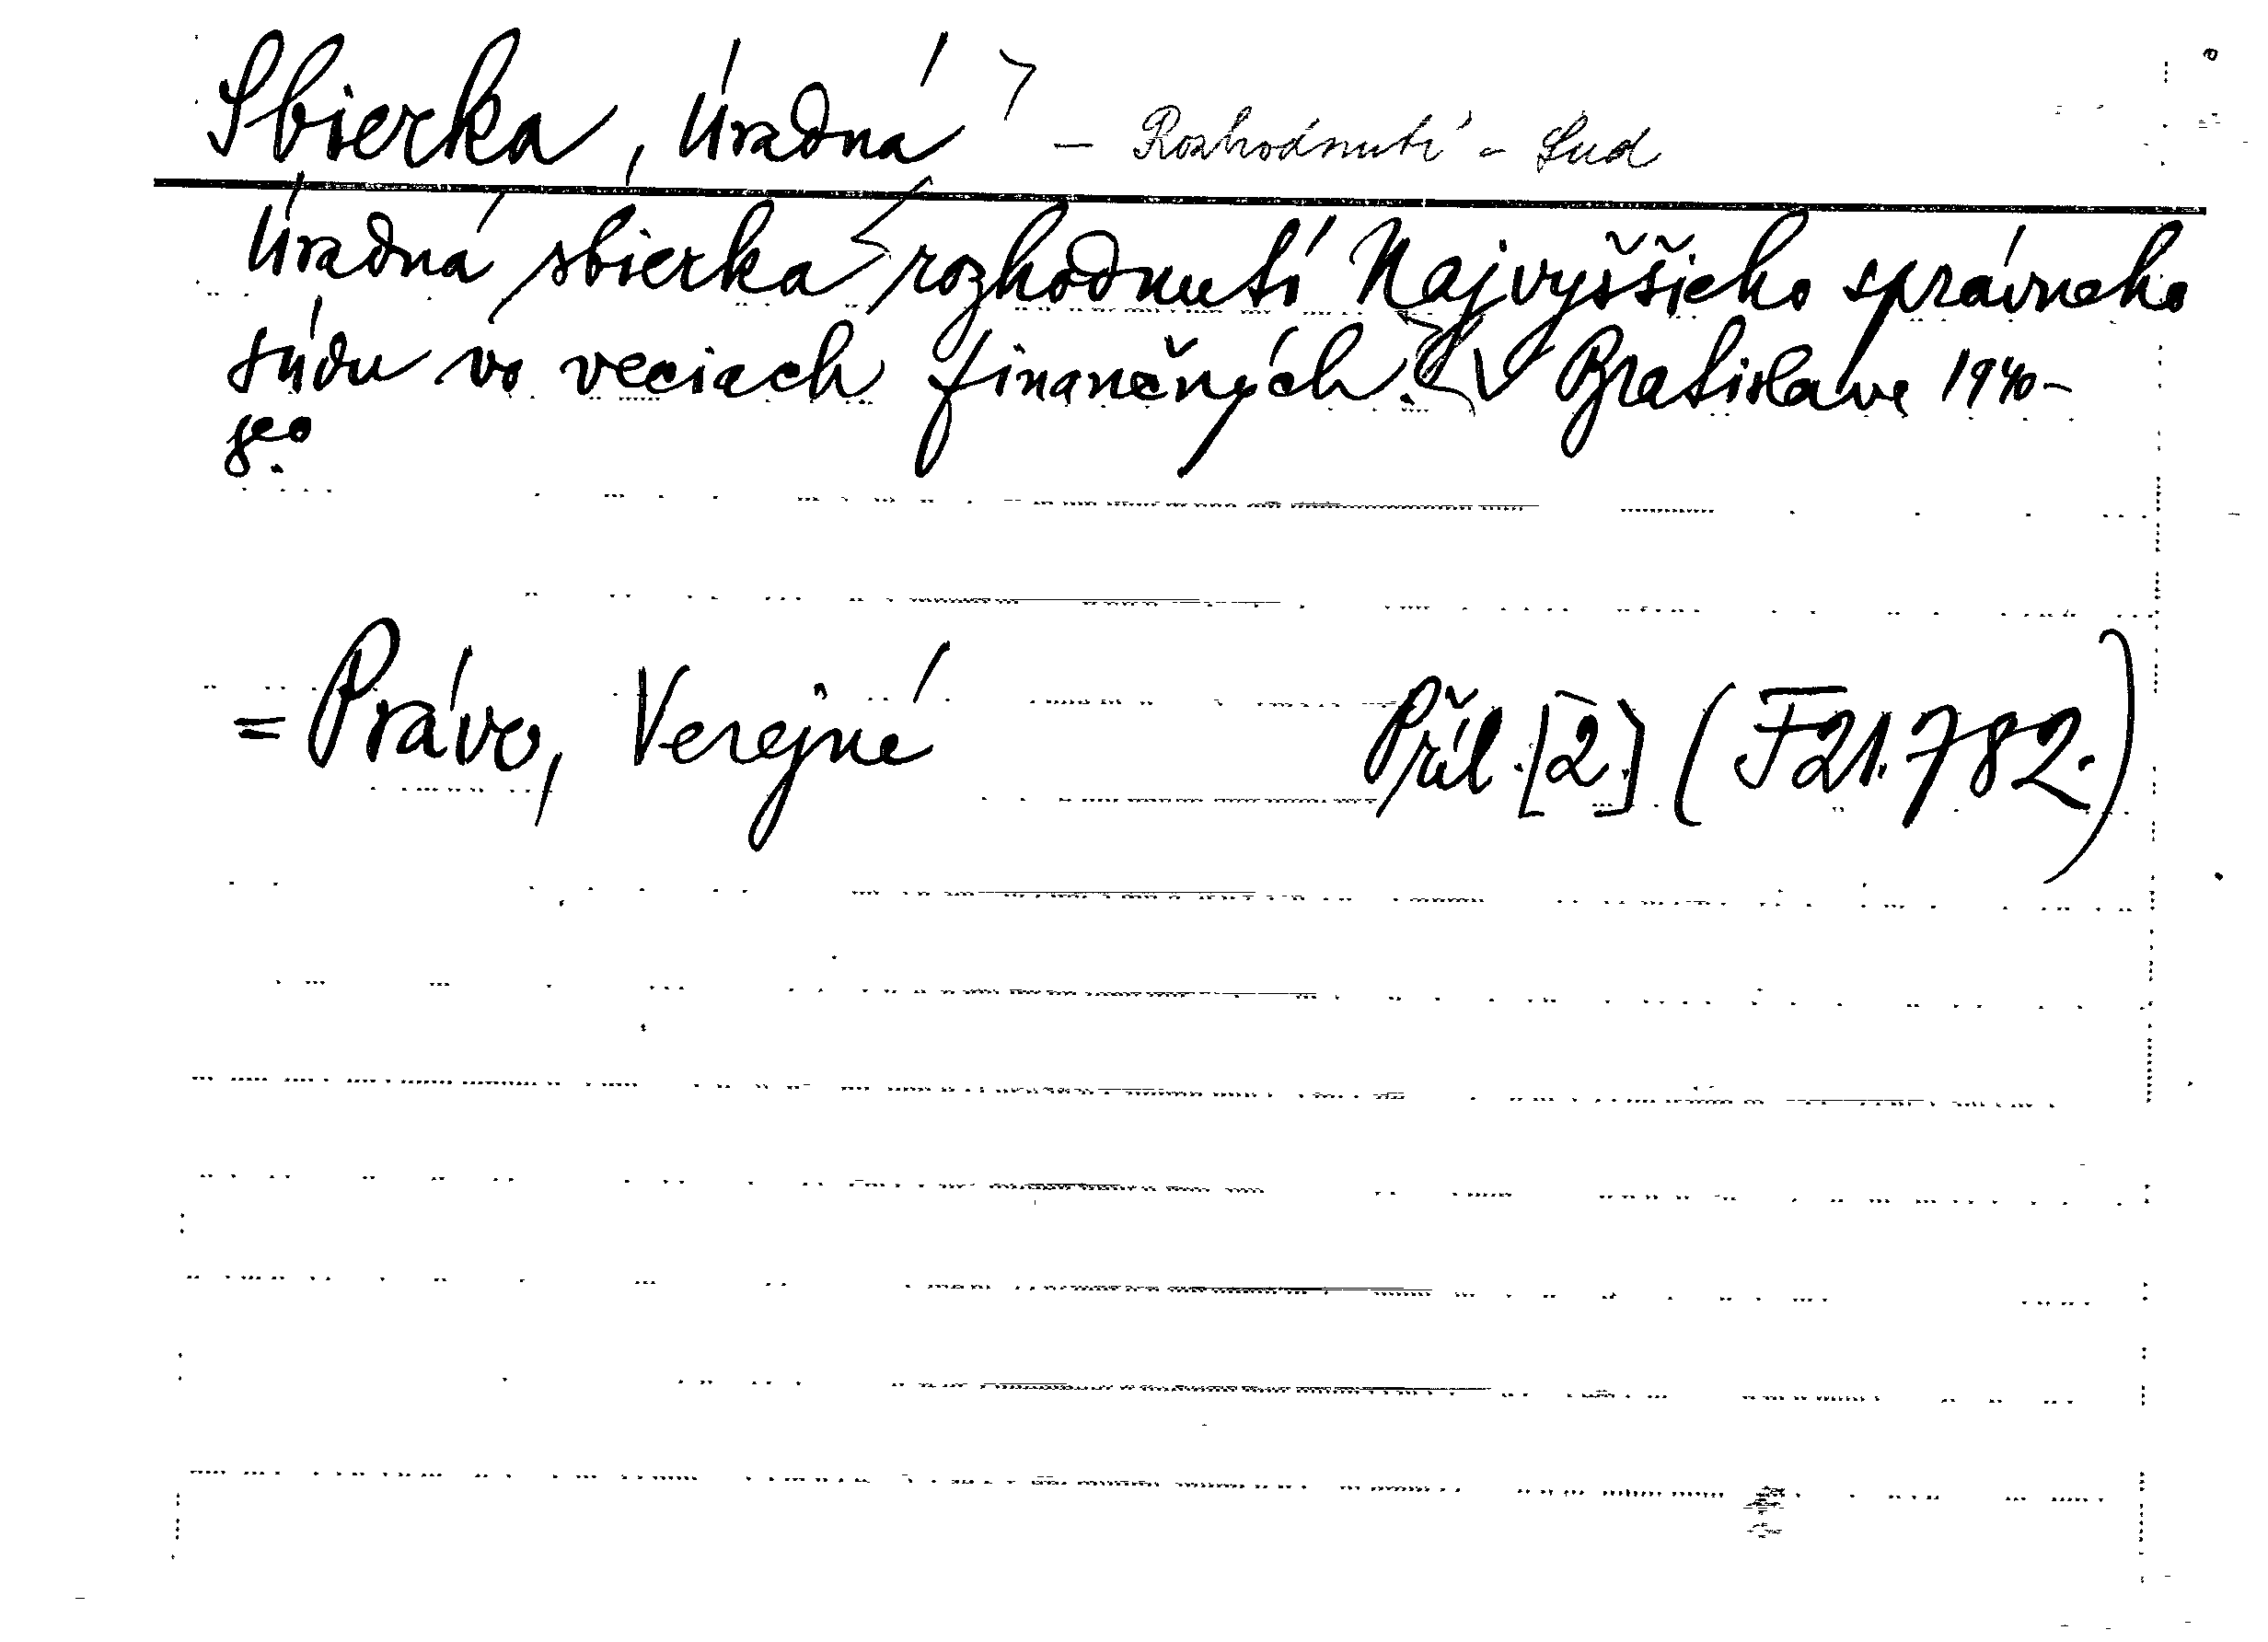 Sbierka, Úradná – Rozhodnutí – Sud
Úradná sbierka rozhodnutí Najvyššieho správneho
súdu vo veciach finančných. V Bratislave 1940–
8°.
= Právo, Verejné Příl. [2.] (F 21.782.)